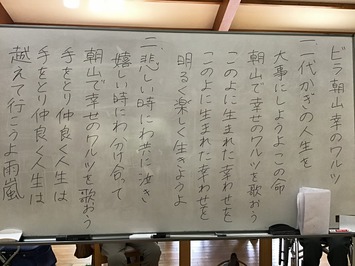 ビラ朝山幸のワルツ
一、一代かぎの人生を
大事にしようよこの命
朝山で幸せのワルツを歌おう
このよに生まれた幸わせを
このよに生まれた幸わせを
明るく楽しく生きようよ
二、悲しい時にわ共に泣き
嬉しい時にわ分け合って
朝山で幸せのワルツを歌おう
手をとり仲良く人生は
手をとり仲良く人生は
越えて行こうよ雨嵐